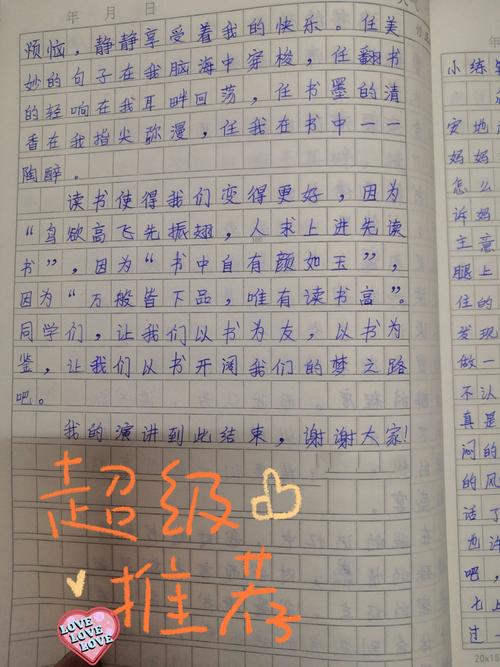 年 月 日
烦恼，静静享受着我的快乐。任美
妙的句子在我脑海中穿梭，任翻书
的轻响在我耳畔回荡，任书墨的清
香在我指尖弥漫，任我在书中一一
陶醉。
读书使得我们变得更好，因为
“鸟欲高飞先振翅，人求上进先读
书”，因为“书中自有颜如玉”，
因为“万般皆下品，唯有读书高”。
同学们，让我们以书为友，以书为
鉴，让我们以书开阔我们的梦之路
吧。
我的演讲到此结束，谢谢大家！
超级
推荐
LOVE
LOVE
LOVE
年
小练笔
安地
妈妈
怎么
诉妈
主意
腿上
住的
发现
做一
不认
真是
闷的
的风
话了
也许
吧，
七上
过